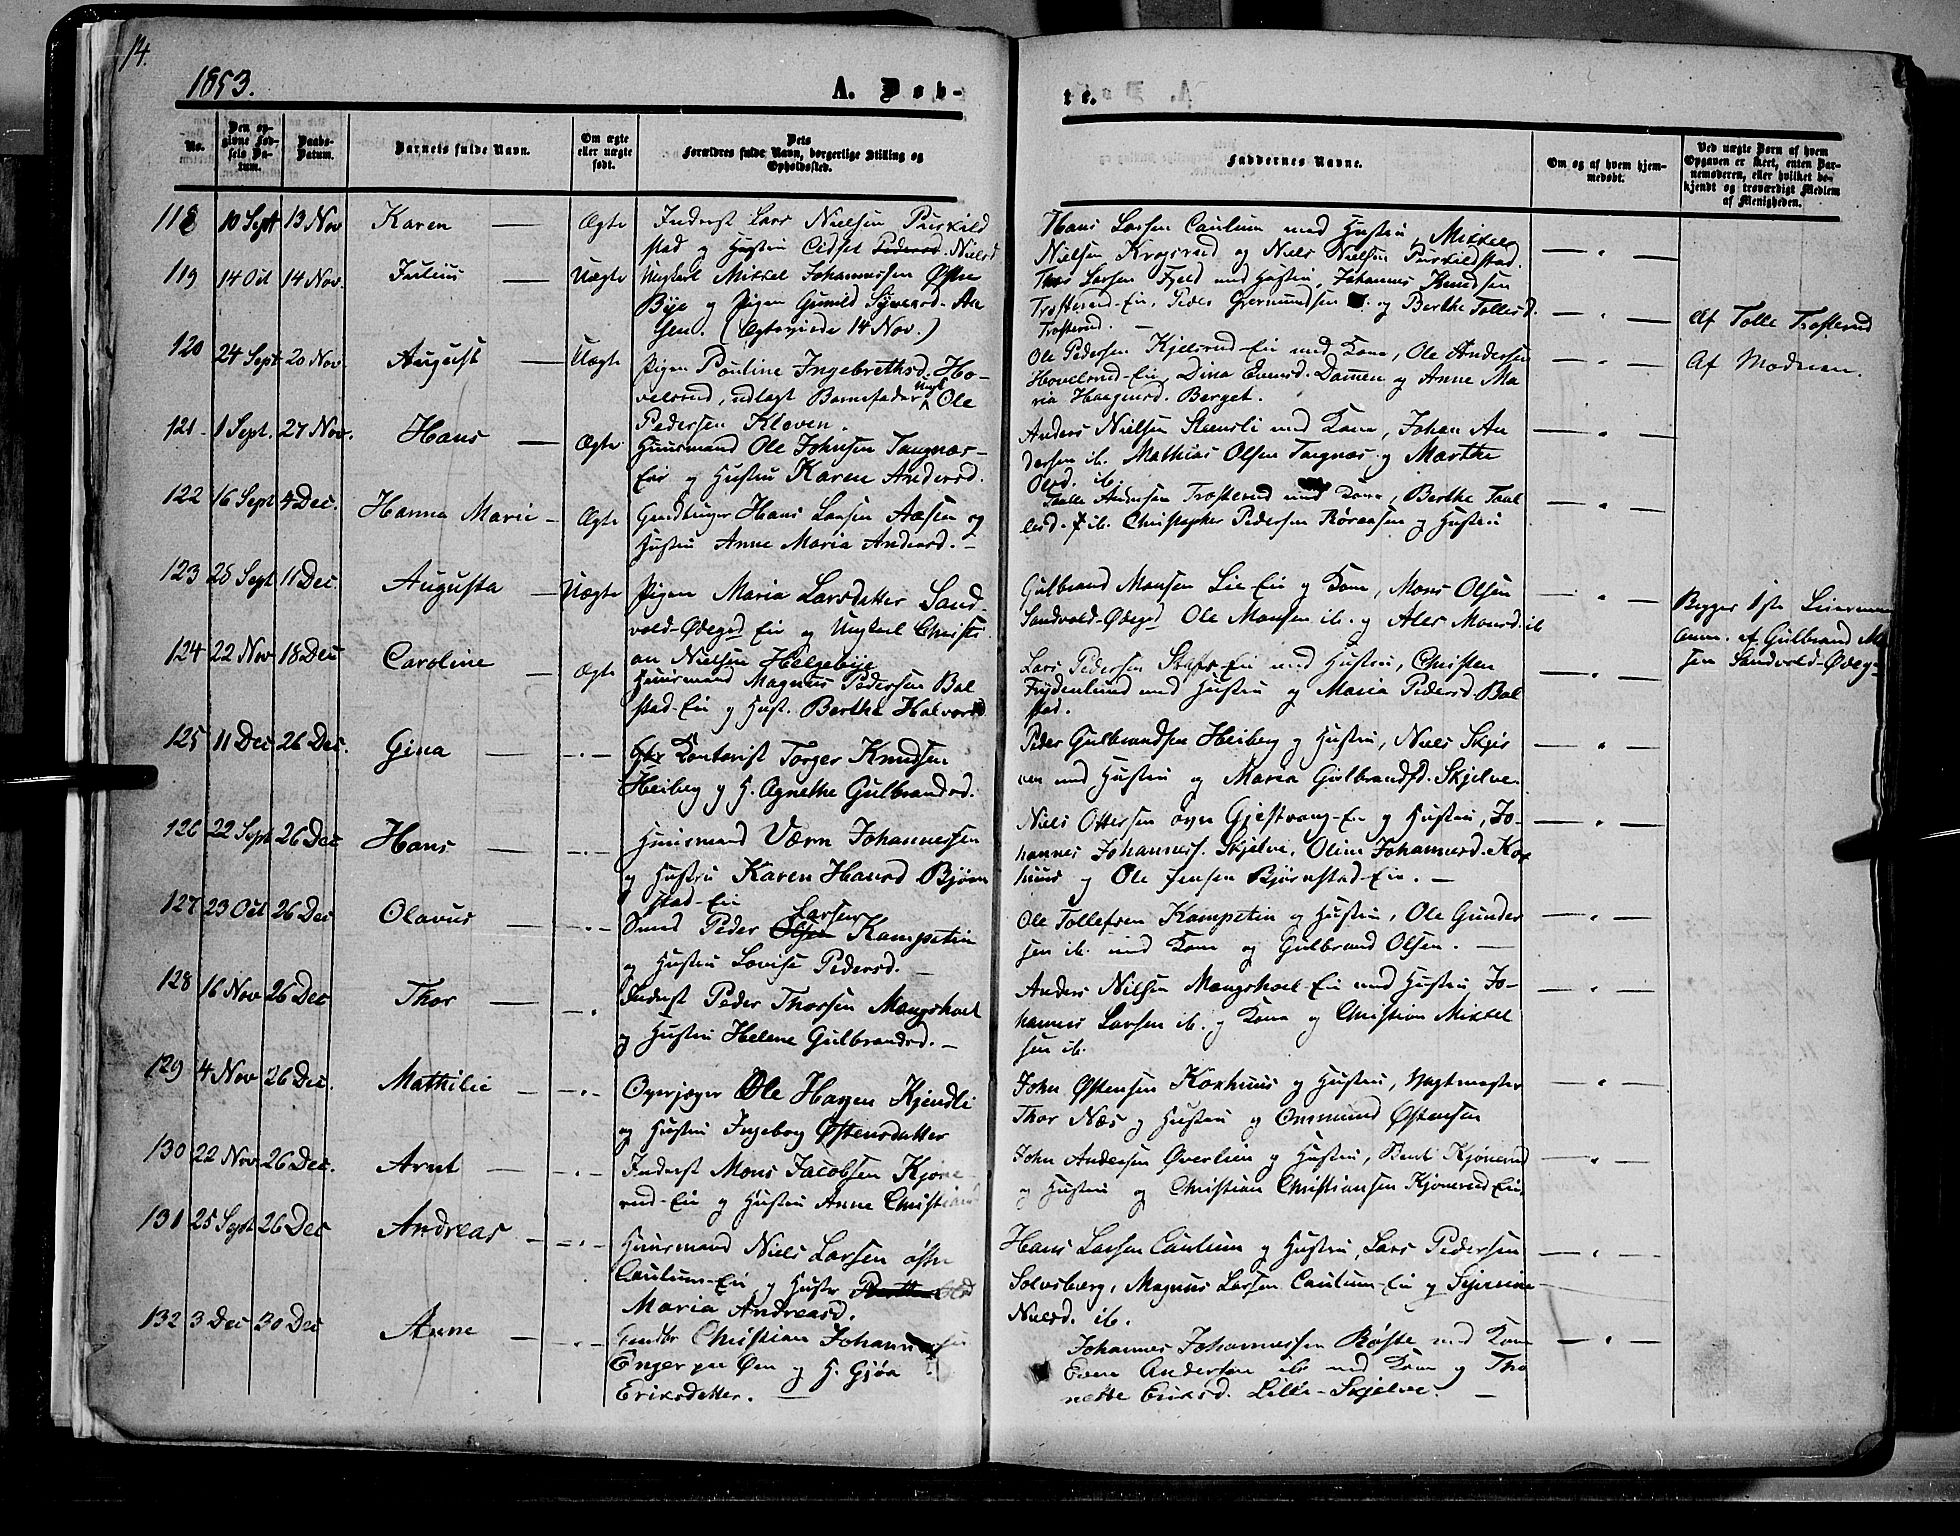 14.
1853.
A. Døb-
te.
No.
Den op-
givne Fød-
sels Da-
tum.
Daabs-
Datum.
Barnets fulde Navn.
Om ægte
eller uægte
født.
Dets
Forældres fulde Navn, borgerlige Stilling og
Opholdssted.
Faddernes Navne.
Om og af hvem hjem-
medøbt.
Ved uægte Børn af hvem
Opgaven er skeet, enten Bar-
nemoderen, eller hvilket be-
kjendt og troværdigt Medlem
af Menigheden.
118 10 Sept 13 Nov Karen — Ægte Inderst Lars Nielsen Purkild
stad og Hustru Nielsd
Hans Larsen Caulum med Hustru, Mikkel
Nielsen Krogsrud og Niels Nielsen Purkildstad.
119 14 Oct 14 Nov. Julius — Uægte Ungkarl Mikkel Johannessen Østre
Bye og Pigen Gunild Syversd. Aa
sen. (Ægteviede 14 Nov.)
Larsen Fjeld med Hustru, Johannes Knudsen
Trosterud-Eie, Peder Gudmundsen og Berthe Tollefsd.
Trosterud. —
Af Tolle Trosterud
120 24 Sept 20 Nov August — Uægte Pigen Pauline Ingebrethsd. Ho-
velsrud, udlagt Barnefader Ungk Ole
Pedersen Kloven.
Ole Pedersen Kjelsrud-Eie med Kone, Ole Andersen
Hovelsrud-Eie, Dina Evensd. Dammen og Anne Ma
ria Haagensd. Berget.
Af Moderen.
121. 1 Sept. 27 Nov. Hans — Ægte Huusmand Ole Johnsen Tangnæs-
Eie og Hustru Karen Andersd.
Anders Nielsen med Kone, Johan An
dersen ib. Mathias Olsen Tangnæs og Marthe
Olsd. ib.
122 16 Sept 4 Dec. Hanna Marie — Ægte Hans Larsen Aasen og
Hustru Anne Maria Andersd. —
Taalle Andersen Trosterud med Kone, Berthe Taal
lesd. ib. Christopher Pedersen Røraasen og Hustru
123 28 Sept 11 Dec. Augusta — Uægte Pigen Maria Larsdatter Sand-
vold-Ødegrd Eie og Ungkarl Christi
an Nielsen Helgebye
Gulbrand Monsen Lie-Eie og Kone, Mons Olsen
Sandvold-Ødegrd Ole Monsen ib. og Ales Monsd. ib
Begges 1ste Leiermaal
anm. af Gulbrand M
sen Sandvold-Ødeg-
124 22 Nov 18 Dec Caroline — Ægte Huusmand Magnus Pedersen Bal
stad-Eie og Hust. Berthe Halvorsd
Lars Pedersen med Hustru, Christen
Frydenlund med Hustru og Maria Pedersd. Bal
stad.
125 11 Dec 26 Dec. Gina — — " — Kontorist Torger Knudsen
Heiberg og H. Agnethe Gulbrandsd.
Peder Gulbrandsen Heiberg og Hustru, Niels Skjel
ven med Hustru og Maria Gulbrandsd. Skjelve.
126 22 Sept 26 Dec Hans — — " — Huusmand Værn Johannessen
og Hustru Karen Hansd Bjørn
stad-Eie
Niels Ottersen øvre Gjestvang-Eie og Hustru, Jo-
hannes Johanness. Skjelve, Oline Johannesd. Kox
huus og Ole Jensen Bjørnstad-Eie. —
127 23 Oct 26 Dec Olavus — — " — Smed Peder Olsen Larsen Kampetin
og Hustru Lovise Pedersd. —
Ole Tollefsen Kampetin og Hustru, Ole Gunder
sen ib. med Kone og Gulbrand Olsen. —
128 16 Nov 26 Dec Thor — — " Inderst Peder Thorsen Mangshoel
og Hustru Helene Gulbrandsd. —
Anders Nilsen Mangshoel-Eie med Hustru Jo-
hannes Larsen ib. og Kone og Christian Mikkel
sen ib.
129 4 Nov 26 Dec. Mathilie — — " — Overjæger Ole Hagen Kjendli
og Hustru Ingeborg Østensdatter
John Østensen Koxhuus og Hustru, Vagtmester
Thor Næs og Hustru og Ommund Østensen
130 22 Nov 26 Dec. Arnt — — " — Inderst Mons Jacobsen Kjøne
rud-Eie og Hustru Anne Christians
John Andersen Øverlien og Hustru, Bent Kjønerud
og Hustru og Christian Christiansen Kjønerud Eie
131 25 Sept 26 Dec Andreas — — " — Huusmand Niels Larsen østre
Caulum-Eie og Hustr
Maria Andreasd.
Hans Larsen Caulum og Hustru, Lars Pedersen
Solvsberg, Magnus Larsen Caulum-Eie og
Nielsd. ib.
132 3 Dec 30 Dec Anne — — " — Christian Johannessen
Enger paa Øen og H. Gjøa
Eriksdatter. —
Johannes Johannessen Røste med Kone
Even Andersen ib med Kone og Tho
nette Eriksd. Lille-Skjelve. —